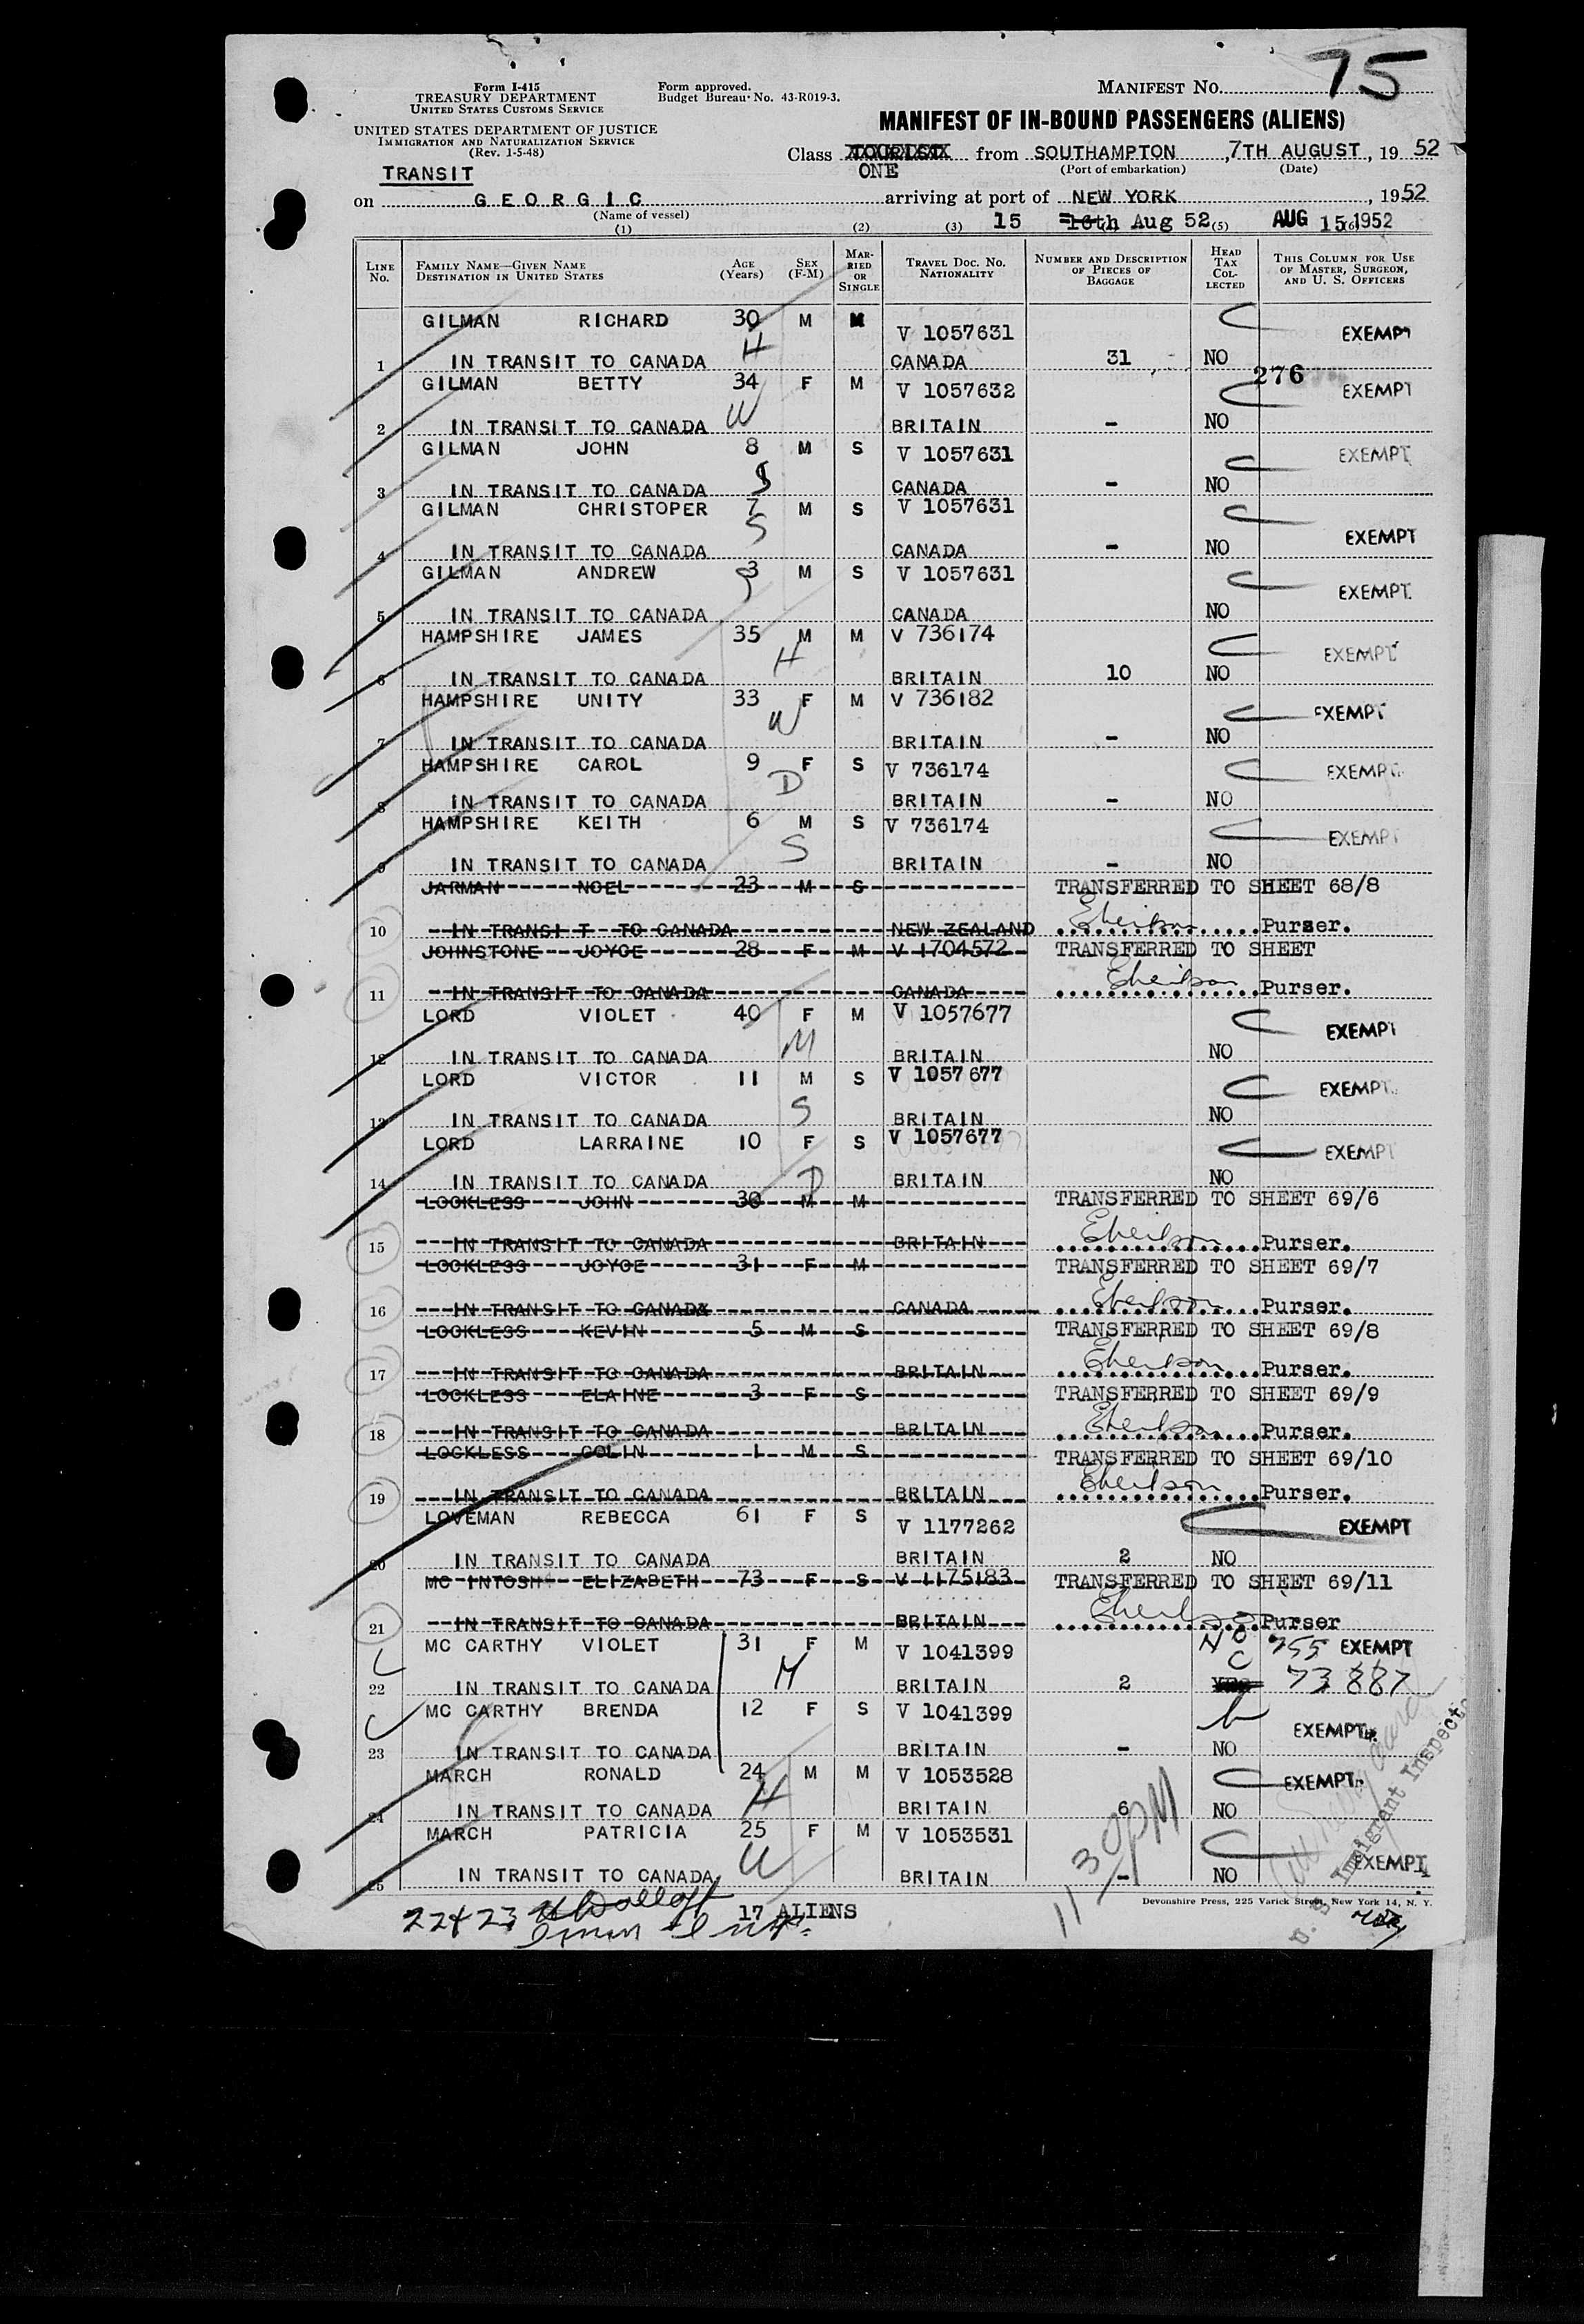 75
Form I-415
TREASURY DEPARTMENT
UNITED STATES CUSTOMS SERVICE
Form approved.
Budget Bureau No. 43-R019-3.
MANIFEST NO.
UNITED STATES DEPARTMENT OF JUSTICE
IMMIGRATION AND NATURALIZATION SERVICE
(Rev. 1-5-48)
MANIFEST OF IN-BOUND PASSENGERS (ALIENS)
Class TOURIST from SOUTHAMPTON, 7TH AUGUST, 19 52
ONE (Port of embarkation) (Date)
TRANSIT
on GEORGIC arriving at port of NEW YORK, 1952
(Name of vessel)
(1) (2) (3) 15 16th Aug 52 (5) AUG 15 1952
LINE No. FAMILY NAME—GIVEN NAME DESTINATION IN UNITED STATES AGE (Years) SEX (F-M) MARRIED OR SINGLE TRAVEL DOC. NO. NATIONALITY NUMBER AND DESCRIPTION OF PIECES OF BAGGAGE HEAD TAX COLLECTED THIS COLUMN FOR USE OF MASTER, SURGEON, AND U. S. OFFICERS
GILMAN RICHARD 30 M M V 1057631 EXEMPT
1 IN TRANSIT TO CANADA H CANADA 31 NO
276
GILMAN BETTY 34 F M V 1057632 EXEMPT
2 IN TRANSIT TO CANADA W BRITAIN - NO
GILMAN JOHN 8 M S V 1057631 EXEMPT
3 IN TRANSIT TO CANADA S CANADA - NO
GILMAN CHRISTOPER 7 M S V 1057631 EXEMPT
4 IN TRANSIT TO CANADA S CANADA - NO
GILMAN ANDREW 3 M S V 1057631 EXEMPT
5 IN TRANSIT TO CANADA S CANADA NO
HAMPSHIRE JAMES 35 M M V 736174 EXEMPT
6 IN TRANSIT TO CANADA H BRITAIN 10 NO
HAMPSHIRE UNITY 33 F M V 736182 EXEMPT
7 IN TRANSIT TO CANADA W BRITAIN - NO
HAMPSHIRE CAROL 9 F S V 736174 EXEMPT
8 IN TRANSIT TO CANADA D BRITAIN - NO
HAMPSHIRE KEITH 6 M S V 736174 EXEMPT
9 IN TRANSIT TO CANADA S BRITAIN - NO
JARMAN NOEL 23 M S TRANSFERRED TO SHEET 68/8
10 IN TRANSIT TO CANADA NEW ZEALAND Purser.
JOHNSTONE JOYCE 28 F M V 1704572 TRANSFERRED TO SHEET
11 IN TRANSIT TO CANADA CANADA Purser.
LORD VIOLET 40 F M V 1057677 EXEMPT
12 IN TRANSIT TO CANADA M BRITAIN NO
LORD VICTOR 11 M S V 1057677 EXEMPT
13 IN TRANSIT TO CANADA S BRITAIN NO
LORD LARRAINE 10 F S V 1057677 EXEMPT
14 IN TRANSIT TO CANADA D BRITAIN NO
LOCKLESS JOHN 30 M M TRANSFERRED TO SHEET 69/6
15 IN TRANSIT TO CANADA BRITAIN Purser.
LOCKLESS JOYCE 31 F M TRANSFERRED TO SHEET 69/7
16 IN TRANSIT TO CANADA CANADA Purser.
LOCKLESS KEVIN 5 M S TRANSFERRED TO SHEET 69/8
17 IN TRANSIT TO CANADA BRITAIN Purser.
LOCKLESS ELAINE 3 F S TRANSFERRED TO SHEET 69/9
18 IN TRANSIT TO CANADA BRITAIN Purser.
LOCKLESS COLIN 1 M S TRANSFERRED TO SHEET 69/10
19 IN TRANSIT TO CANADA BRITAIN Purser.
LOVEMAN REBECCA 61 F S V 1177262 EXEMPT
20 IN TRANSIT TO CANADA BRITAIN 2 NO
MC INTOSH ELIZABETH 73 F S V 1175183 TRANSFERRED TO SHEET 69/11
21 IN TRANSIT TO CANADA BRITAIN Purser
MC CARTHY VIOLET 31 F M V 1041399 NO 755 EXEMPT
22 IN TRANSIT TO CANADA M BRITAIN 2 YES 73887
MC CARTHY BRENDA 12 F S V 1041399 EXEMPT
23 IN TRANSIT TO CANADA BRITAIN - NO
MARCH RONALD 24 M M V 1053528 EXEMPT
24 IN TRANSIT TO CANADA H BRITAIN 6 NO
MARCH PATRICIA 25 F M V 1053531 EXEMPT
25 IN TRANSIT TO CANADA W BRITAIN - NO
11 30 PM
U. S. Immigrant Inspector
Devonshire Press, 225 Varick Street, New York 14, N. Y.
22 & 23
17 ALIENS